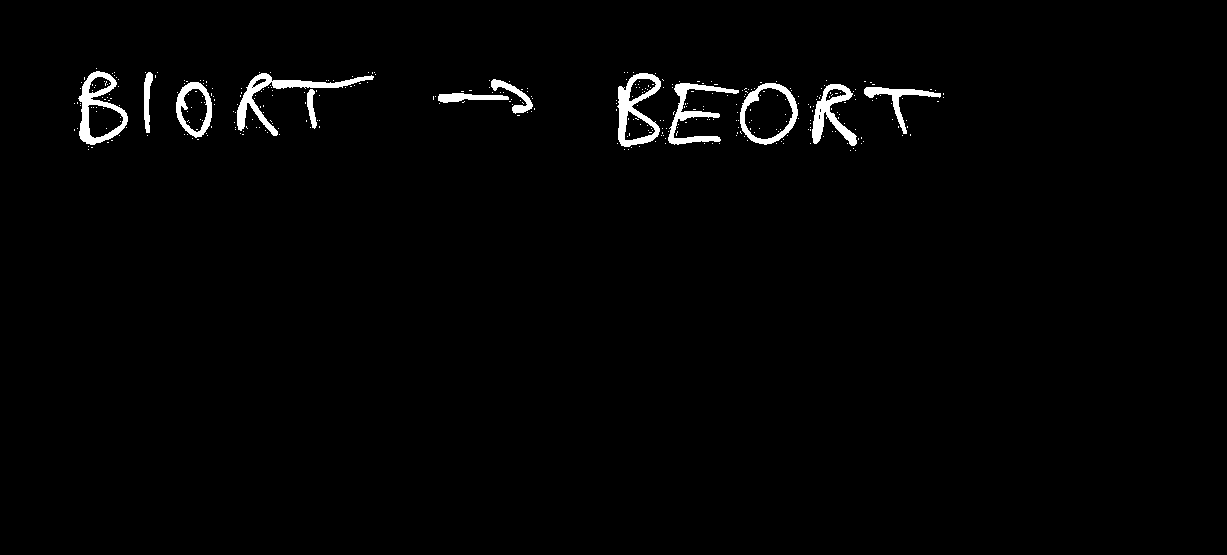 BIORT → BEORT